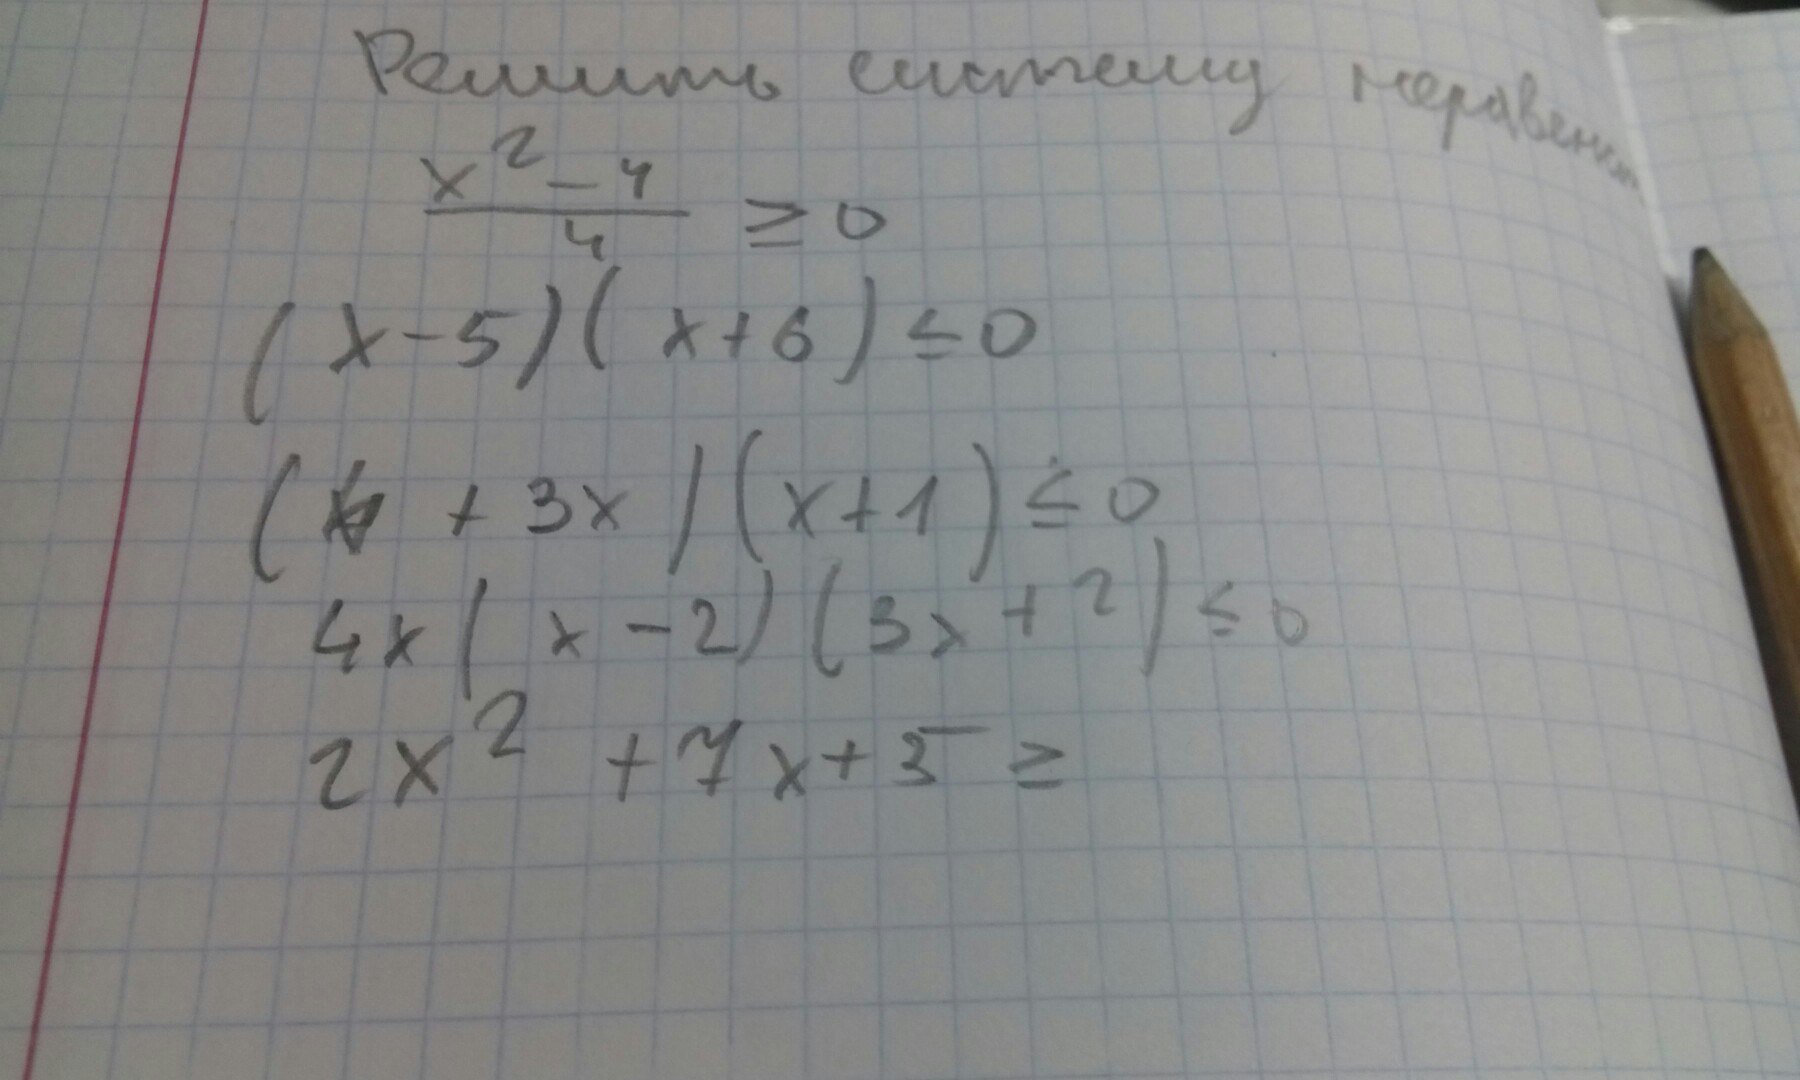 Решить систему неравенст
x² - 4
4
≥ 0
(x-5)(x+6) ≤ 0
(4 + 3x)(x+1) ≤ 0
4x(x-2)(3x+2) ≤ 0
2x² + 7x + 5 ≥